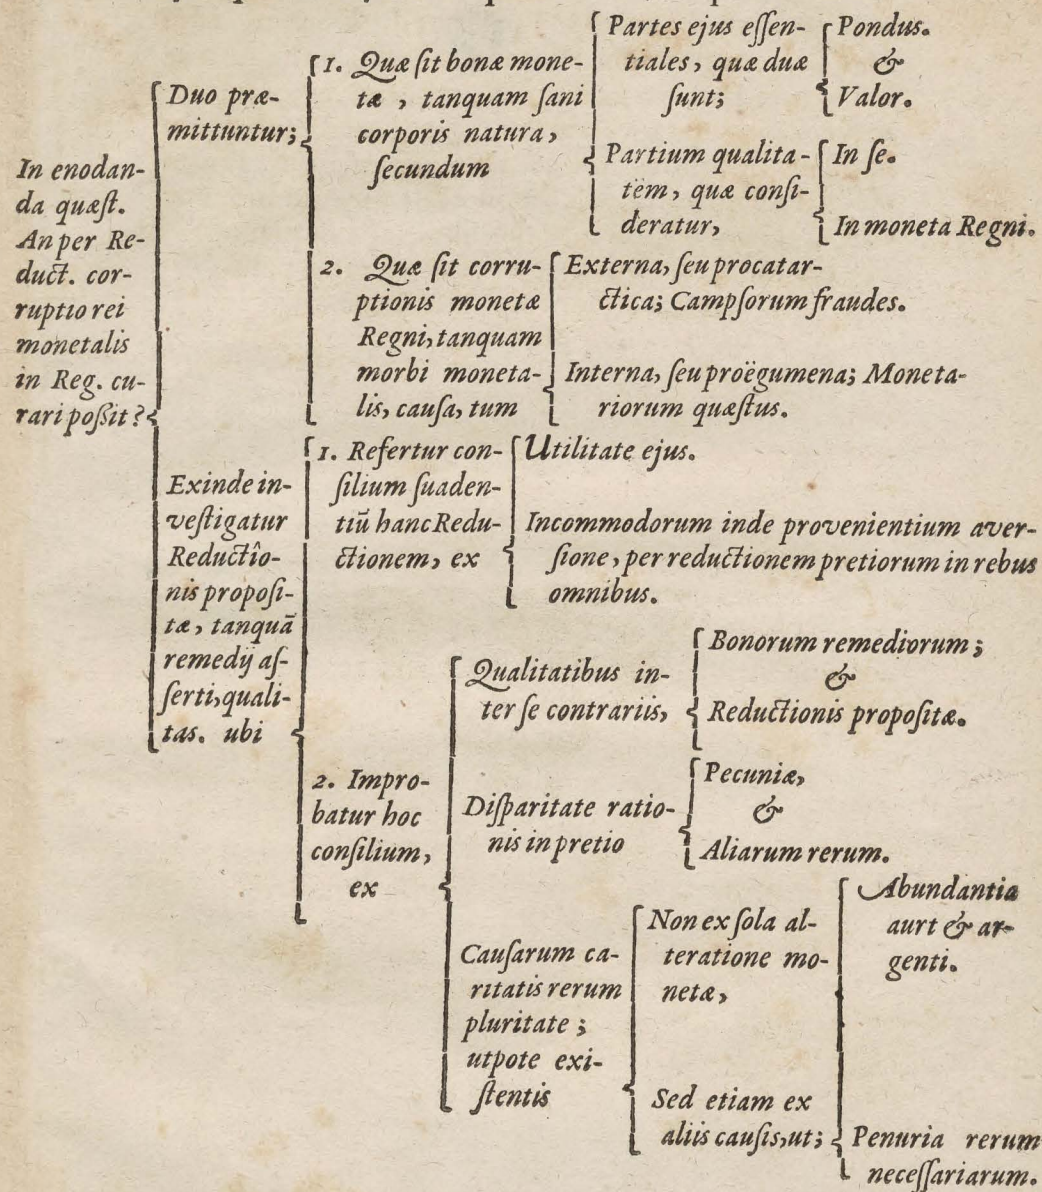 In enodan-
da quæſt.
An per Re-
duct. cor-
ruptio rei
monetalis
in Reg. cu-
rari poßit?
Duo præ-
mittuntur;
1. Quæ ſit bonæ mone-
tæ, tanquam ſani
corporis natura,
ſecundum
Partes ejus eſſen-
tiales, quæ duæ
ſunt;
Pondus.
&
Valor.
Partium qualita-
tëm, quæ conſi-
deratur,
In ſe.
In moneta Regni.
2. Quæ ſit corru-
ptionis monetæ
Regni, tanquam
morbi moneta-
lis, cauſa, tum
Externa, ſeu procatar-
ctica; Campſorum fraudes.
Interna, ſeu proëgumena; Moneta-
riorum quæſtus.
Exinde in-
veſtigatur
Reductîo-
nis propoſi-
tæ, tanquã
remedij aſ-
ſerti, quali-
tas. ubi
1. Refertur con-
ſilium ſuaden-
tiũ hanc Redu-
ctionem, ex
Utilitate ejus.
Incommodorum inde provenientium aver-
ſione, per reductionem pretiorum in rebus
omnibus.
2. Impro-
batur hoc
conſilium,
ex
Qualitatibus in-
ter ſe contrariis,
Bonorum remediorum;
&
Reductionis propoſitæ.
Diſparitate ratio-
nis in pretio
Pecuniæ,
&
Aliarum rerum.
Cauſarum ca-
ritatis rerum
pluritate;
utpote exi-
ſtentis
Non ex ſola al-
teratione mo-
netæ,
Sed etiam ex
aliis cauſis, ut;
Abundantia
auri & ar-
genti.
Penuria rerum
neceſſariarum.